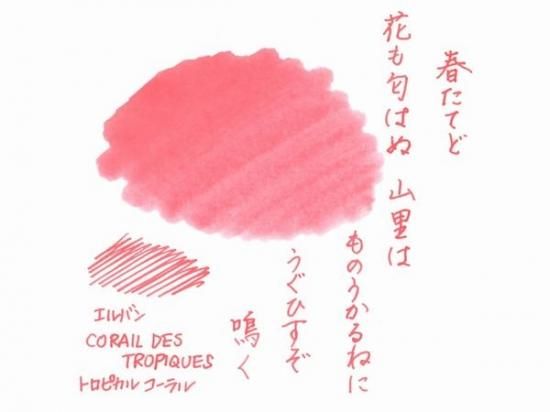 春たてど
花も匂はぬ 山里は
ものうかるねに
うぐひすぞ
鳴く
エルバン
CORAIL DES
TROPIQUES
トロピカル コーラル